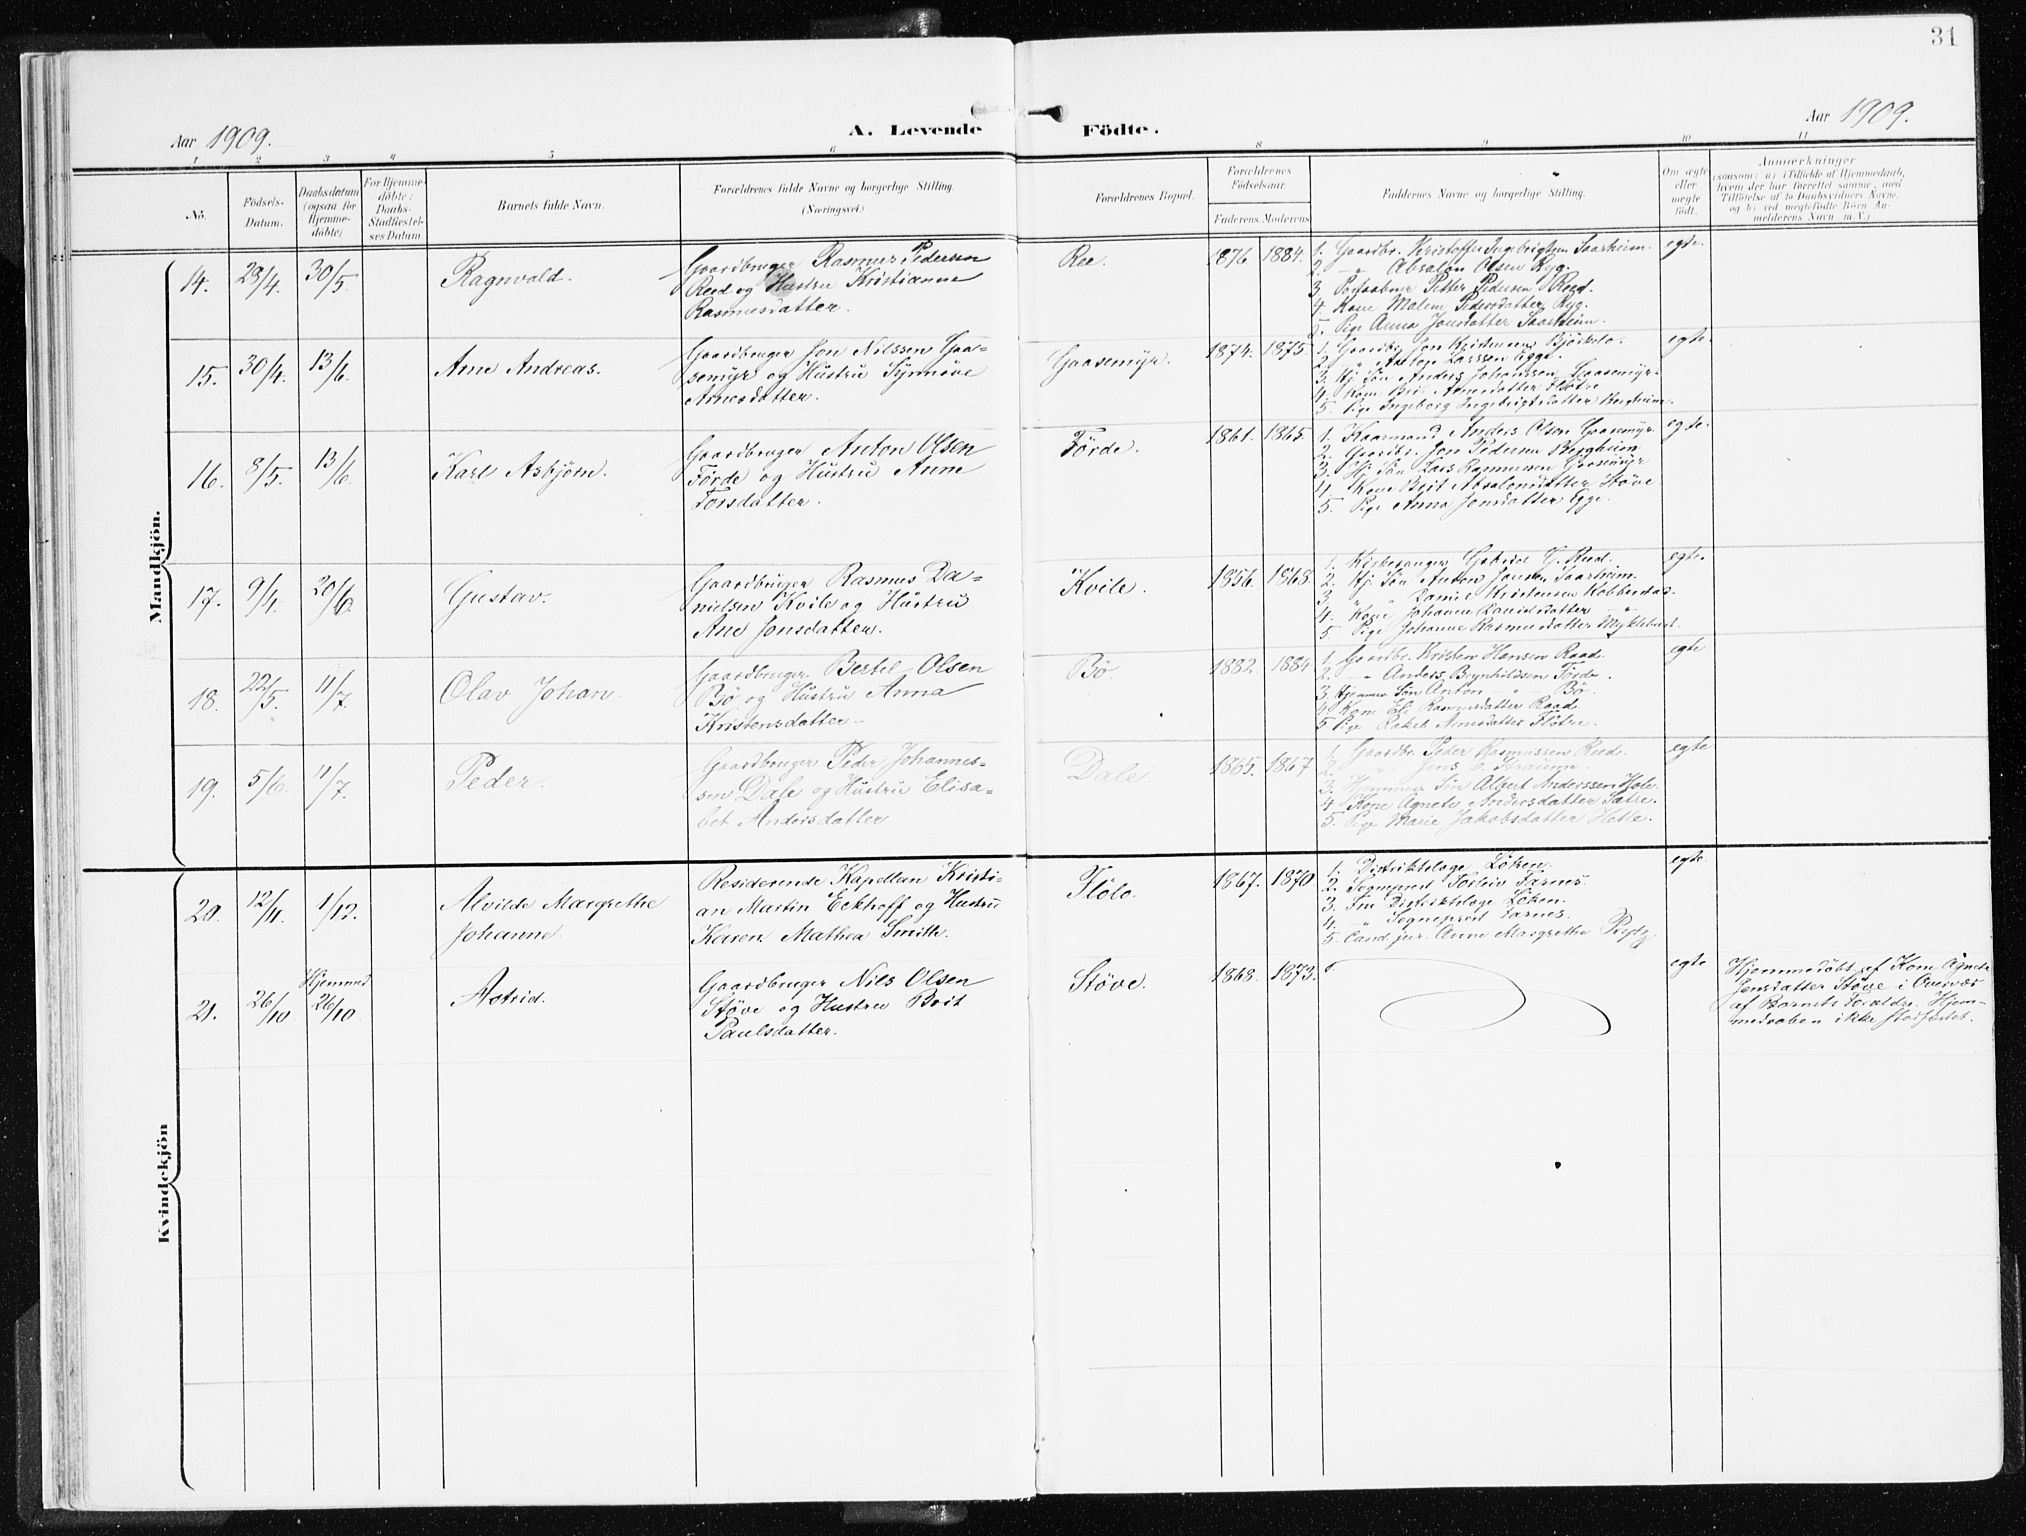 31
Aar 1909.
A. Levende
Födte.
Aar 1909.
1 2 3 4 5 6 8 9 10 11
No.
Födsels-
Datum.
Daabsdatum
(ogsaa for
Hjemme-
döbte)
For Hjemme-
döbte:
Daabs-
Stadfæstel-
ses Datum
Barnets fulde Navn.
Forældrenes fulde Navne og borgerlige Stilling.
(Næringsvei.)
Forældrenes Bopæl.
Forældrenes
Födselsaar.
Faderens. Moderens
Faddernes Navne og borgerlige Stilling.
Om ægte
eller
uægte
födt.
Anmærkninger
(saasom: a) i Tilfælde af Hjemmedaab,
hvem der har forrettet samme, med
Tilföielse af to Daabsvidners Navne,
og b) ved uægtefödte Börn An-
melderens Navn m. V.)
Mandkjön.
14. 29/4. 30/5. Ragnvald.
Gaardbruger Rasmus Pedersen
Reed og Hustru Kristianne
Rasmusdatter.
Ree. 1876 1884.
1. Gaardbr. Kristoffer Ingebrigtsen Saarheim.
2. — " Absalon Olsen Ryg.
3. Postaabner Petter Pedersen Reed.
4. Kone Malene Pedersdatter Ryg.
5. Pige Anna Jonsdatter Saarheim.
egte.
15. 30/4. 13/6. Arne Andreas.
Gaardbruger Jon Nilssen Gaa-
semyr og Hustru Synnøve
Arnesdatter.
Gaasemyr. 1874. 1875
1. Gaardbr. Jon Kristensen Bjørkelo.
2. " Anton Larssen Egge.
3. Hj. Søn Anders Johanssen Gaasemyr.
4. Kone Brit Arnesdatter Fløtre
5. Pige Ingeborg Ingebrigtsdatter Bergheim.
egte.
16. 8/5. 13/6. Karl Asbjørn.
Gaardbruger Anton Olsen
Førde og Hustru Anne
Torsdatter.
Førde. 1861. 1865.
1. Kaarmand Anders Olsen Gaasemyr.
2. Gaardbr. Jon Pedersen Bergheim.
3. Hj. Søn Lars Rasmussen Gaasemyr
4. Kone Brit Absalonsdatter Støve
5. Pige Anna Jonsdatter Egge.
egte.
17. 9/4. 20/6. Gustav.
Gaardbruger Rasmus Da-
nielsen Kvile og Hustru
Ane Jonsdatter.
Kvile. 1856. 1868.
1. Kirkesanger Gabriel G. Reed.
2. Hj. Søn Anton Jonsen Saarheim.
3. " " Daniel Kristensen Kobberstad.
4. Kone Johanne Danielsdatter — " —
5. Pige Johanne Rasmusdatter Myklebust.
egte.
18. 22/5. 11/7. Olav Johan.
Gaardbruger Bertel Olsen
Bø og Hustru Anna
Kristensdatter.
Bø. 1882. 1884
1. Gaardbr. Kristen Hansen Raad.
2. — " Anders Brynhildsen Førde.
3. Hjemmev. Søn Anton — " — Bø.
4. Kone Eli Rasmusdatter Raad
5. Pige Rakel Arnesdatter Fløtre.
egte
19. 5/6. 11/7. Peder.
Gaardbruger Peder Johannes-
sen Dale og Hustru Elisa-
bet Andersdatter
Dale. 1865. 1867
1. Gaardbr. Peder Rasmussen Reed.
2. — " Jens
3. Hjemmev. Søn Albert Anderssen Hole.
4. Kone Agnete Andersdatter Sætre.
5. Pige Marie Jakobsdatter Hetle.
egte
Kvindekjön
20. 12/11. 1/12. Alvilde Margrethe
Johanne.
Residerende Kapellan Kristi-
an Martin Eckhoff og Hustru
Karen Mathea Smith.
Flölo. 1867. 1870
1. Distriktslæge Löken.
2. Sogneprest Torleiv Farnes.
3. Fru Distriktslæge Löken.
4. — " Sogneprest Farnes.
5. Cand. jur. Anne Margrethe
egte.
21. 26/10 Hjemmed 26/10. Astrid.
Gaardbruger Nils Olsen
Støve og Hustru Brit
Paulsdatter.
Støve. 1868. 1873.
egte
Hjemmedøbt af Kone Agnete
Jensdatter Støve i Overvær
af Barnets Forældre. Hjem-
medaaben ikke stadfæstet.